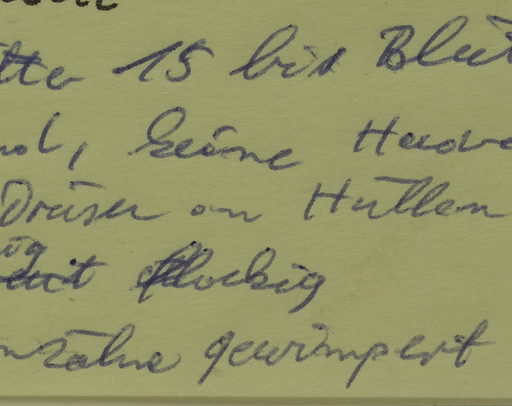 15 bis Blüt
keine Haare
Drüsen an Hüllen
flockig
zähne gewimpert